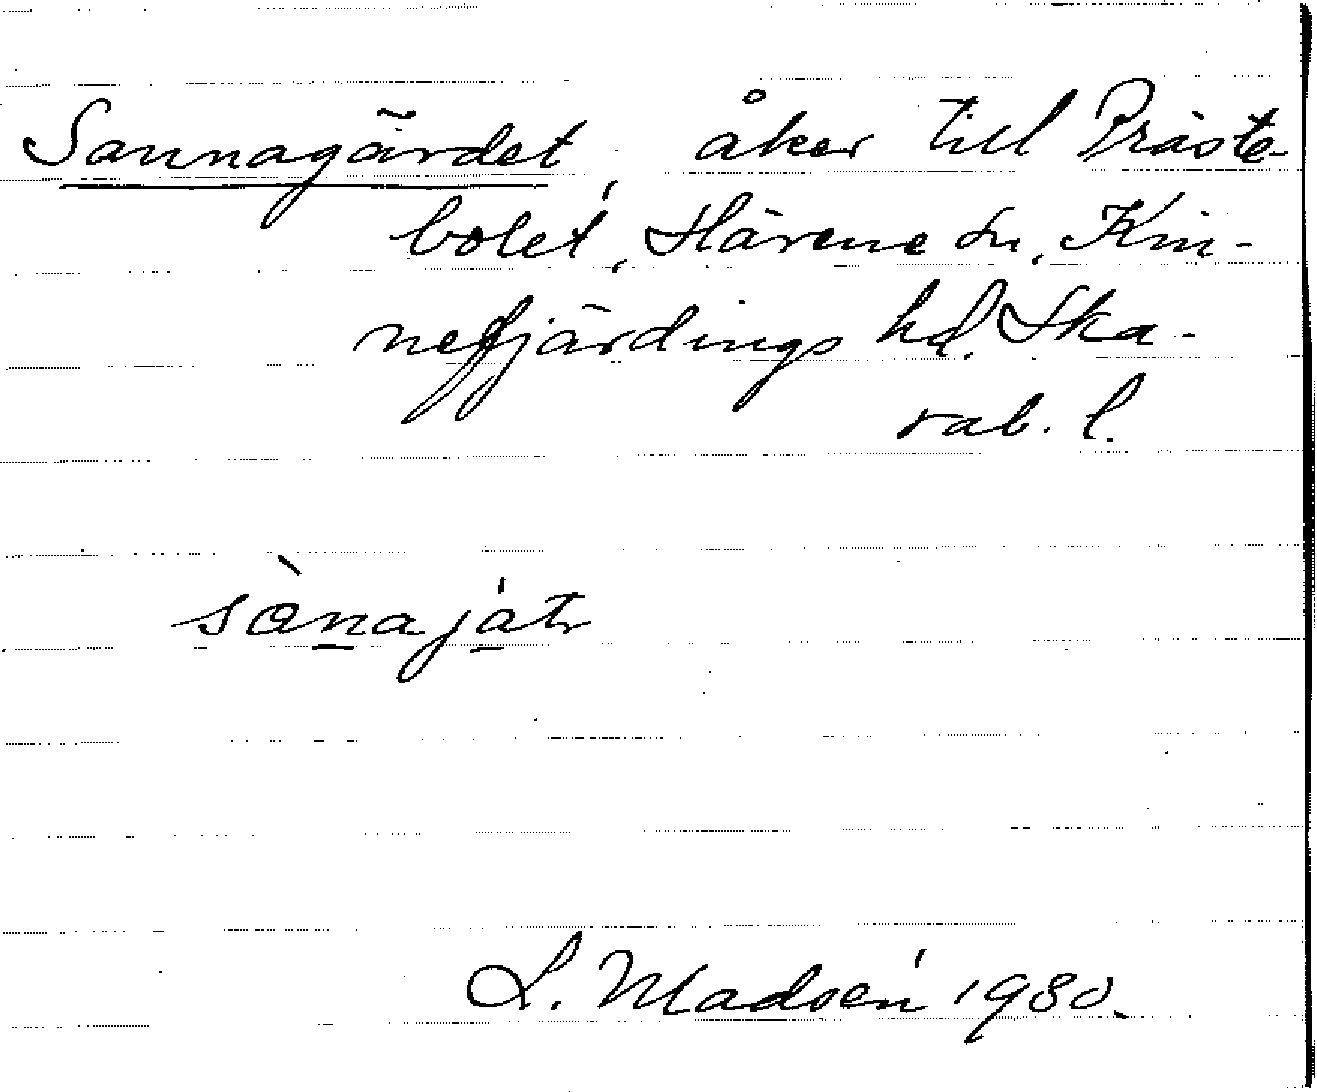 Sannagärdet, åker till Präste-
bolet, Härene sn, Kin-
nefjärdings hd. Ska-
rab. l.
sànajátr
L. Madsén 1980.